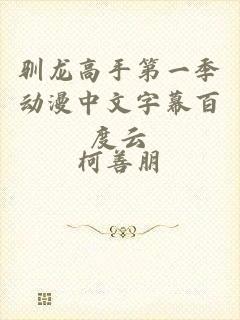 驯龙高手第一季
动漫中文字幕百
度云
柯善朋